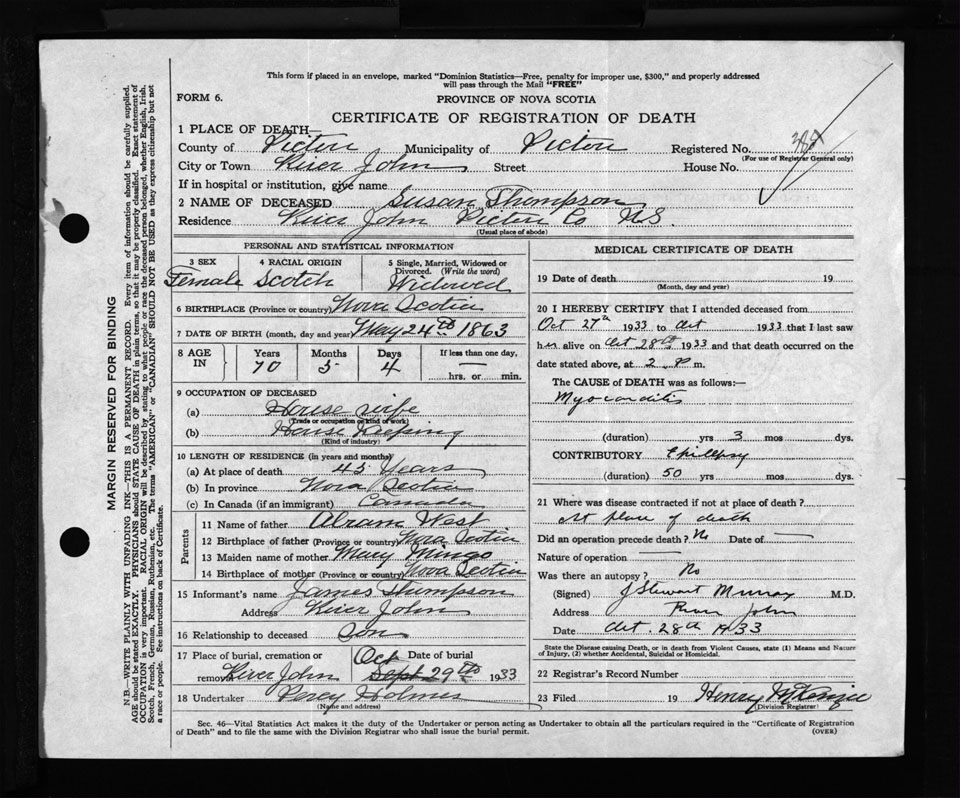 This form if placed in an envelope, marked "Dominion Statistics—Free, penalty for improper use, $300," and properly addressed
will pass through the Mail "FREE"
FORM 6.
PROVINCE OF NOVA SCOTIA
CERTIFICATE OF REGISTRATION OF DEATH
1 PLACE OF DEATH—
County of Pictou Municipality of Pictou Registered No.
(For use of Registrar General only)
City or Town River John Street House No.
If in hospital or institution, give name
2 NAME OF DECEASED Susan Thompson
Residence River John Pictou Co N.S.
(Usual place of abode)
PERSONAL AND STATISTICAL INFORMATION
3 SEX 4 RACIAL ORIGIN 5 Single, Married, Widowed or
Divorced. (Write the word)
Female Scotch Widowed
6 BIRTHPLACE (Province or country) Nova Scotia
7 DATE OF BIRTH (month, day and year) May 24th 1863
8 AGE IN Years Months Days If less than one day,
70 5 4 — hrs. or min.
9 OCCUPATION OF DECEASED
(a) House wife
(Trade or occupation or kind of work)
(b) House Keeping
(Kind of industry)
10 LENGTH OF RESIDENCE (in years and months)
(a) At place of death 45 Years
(b) In province Nova Scotia
(c) In Canada (if an immigrant) Canada
Parents
11 Name of father Abram West
12 Birthplace of father (Province or country) Nova Scotia
13 Maiden name of mother Mary Mingo
14 Birthplace of mother (Province or country) Nova Scotia
15 Informant's name James Thompson
Address River John
16 Relationship to deceased Son
17 Place of burial, cremation or Date of burial
Oct
removal River John Sept 29th 1933
18 Undertaker Percy Holmes
(Name and address)
MEDICAL CERTIFICATE OF DEATH
19 Date of death 19
(Month, day and year)
20 I HEREBY CERTIFY that I attended deceased from
Oct 27th 1933 to Oct 1933 that I last saw
h alive on Oct 28th 1933 and that death occurred on the
date stated above, at 2 P m.
The CAUSE of DEATH was as follows:—
Myocarditis
(duration) yrs 3 mos dys.
CONTRIBUTORY Epilepsy
(duration) 50 yrs mos dys.
21 Where was disease contracted if not at place of death?
At place of death
Did an operation precede death? No Date of —
Nature of operation —
Was there an autopsy? No
(Signed) J Stewart Murray M.D.
Address River John
Date Oct. 28th 1933
State the Disease causing Death, or in death from Violent Causes, state (1) Means and Nature
of Injury, (2) whether Accidental, Suicidal or Homicidal.
22 Registrar's Record Number
23 Filed 19 Henry McKenzie
(Division Registrar)
Sec. 46—Vital Statistics Act makes it the duty of the Undertaker or person acting as Undertaker to obtain all the particulars required in the "Certificate of Registration
of Death" and to file the same with the Division Registrar who shall issue the burial permit. (OVER)
MARGIN RESERVED FOR BINDING
N.B.—WRITE PLAINLY WITH UNFADING INK—THIS IS A PERMANENT RECORD. Every item of information should be carefully supplied.
AGE should be stated EXACTLY. PHYSICIANS should STATE CAUSE OF DEATH in plain terms, so that it may be properly classified. Exact statement of
OCCUPATION is very important. RACIAL ORIGIN will be described by stating to what people or race the deceased person belonged, whether English, Irish,
Scotch, French, German, Russian, Ruthenian, etc. The terms "AMERICAN" or "CANADIAN" SHOULD NOT BE USED as they express citizenship but not
a race or people. See instructions on back of Certificate.